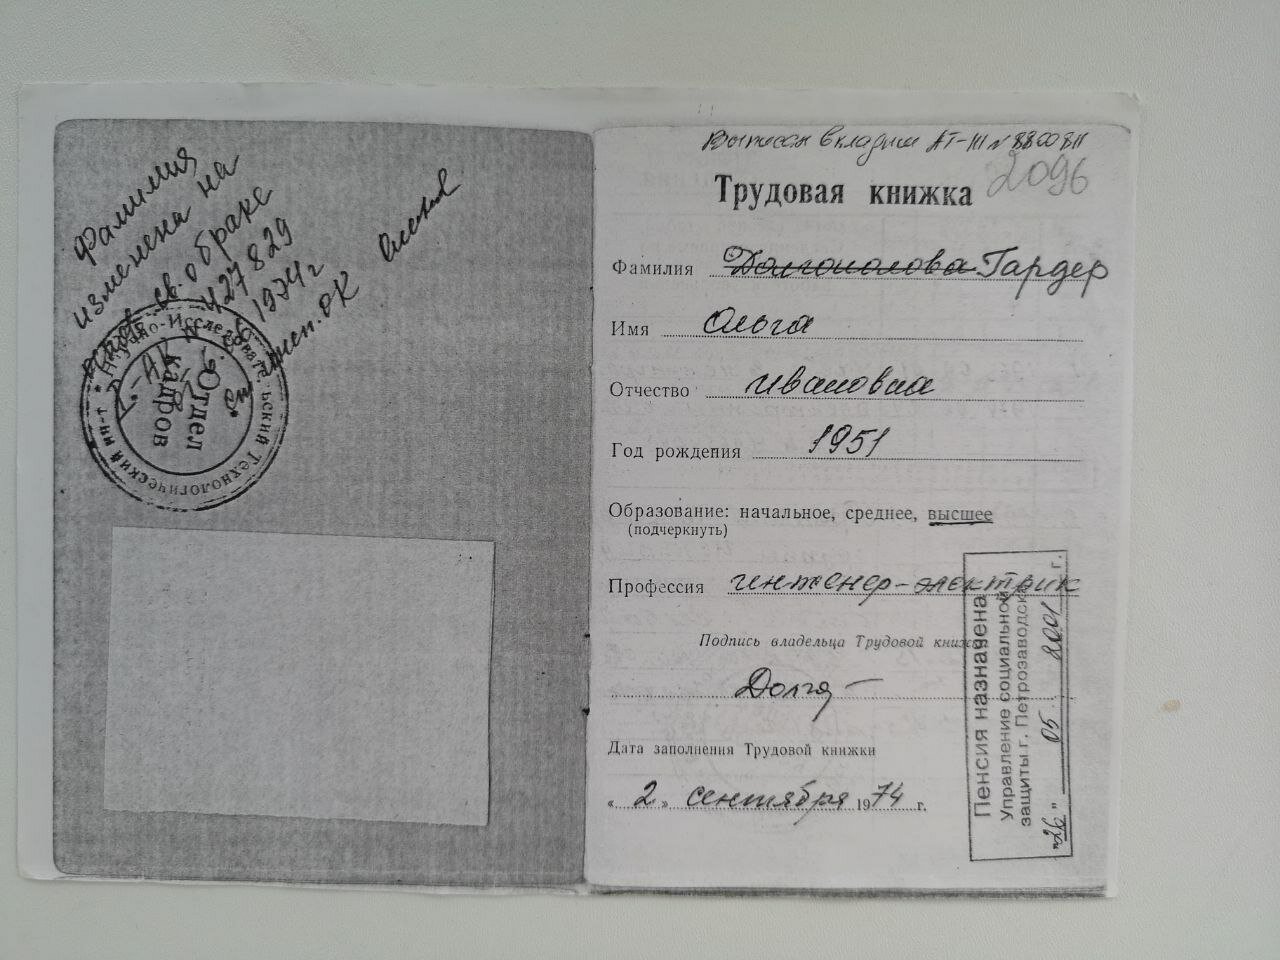 Фамилия
изменена на
св. о браке
427829
1974 г
инсп. ОК
Научно-Исследовательский Технологический ин-т
Отдел
кадров
Выписан вкладыш АТ-III № 8800811
2096
Трудовая книжка
Фамилия Долгополова Гардер
Имя Ольга
Отчество Ивановна
Год рождения 1951
Образование: начальное, среднее, высшее
(подчеркнуть)
Профессия инженер-электрик
Подпись владельца Трудовой книжки
Долго
Дата заполнения Трудовой книжки
«2» сентября 1974 г.
Пенсия назначена
Управление социальной
защиты г. Петрозаводска
"26" 05 2001 г.